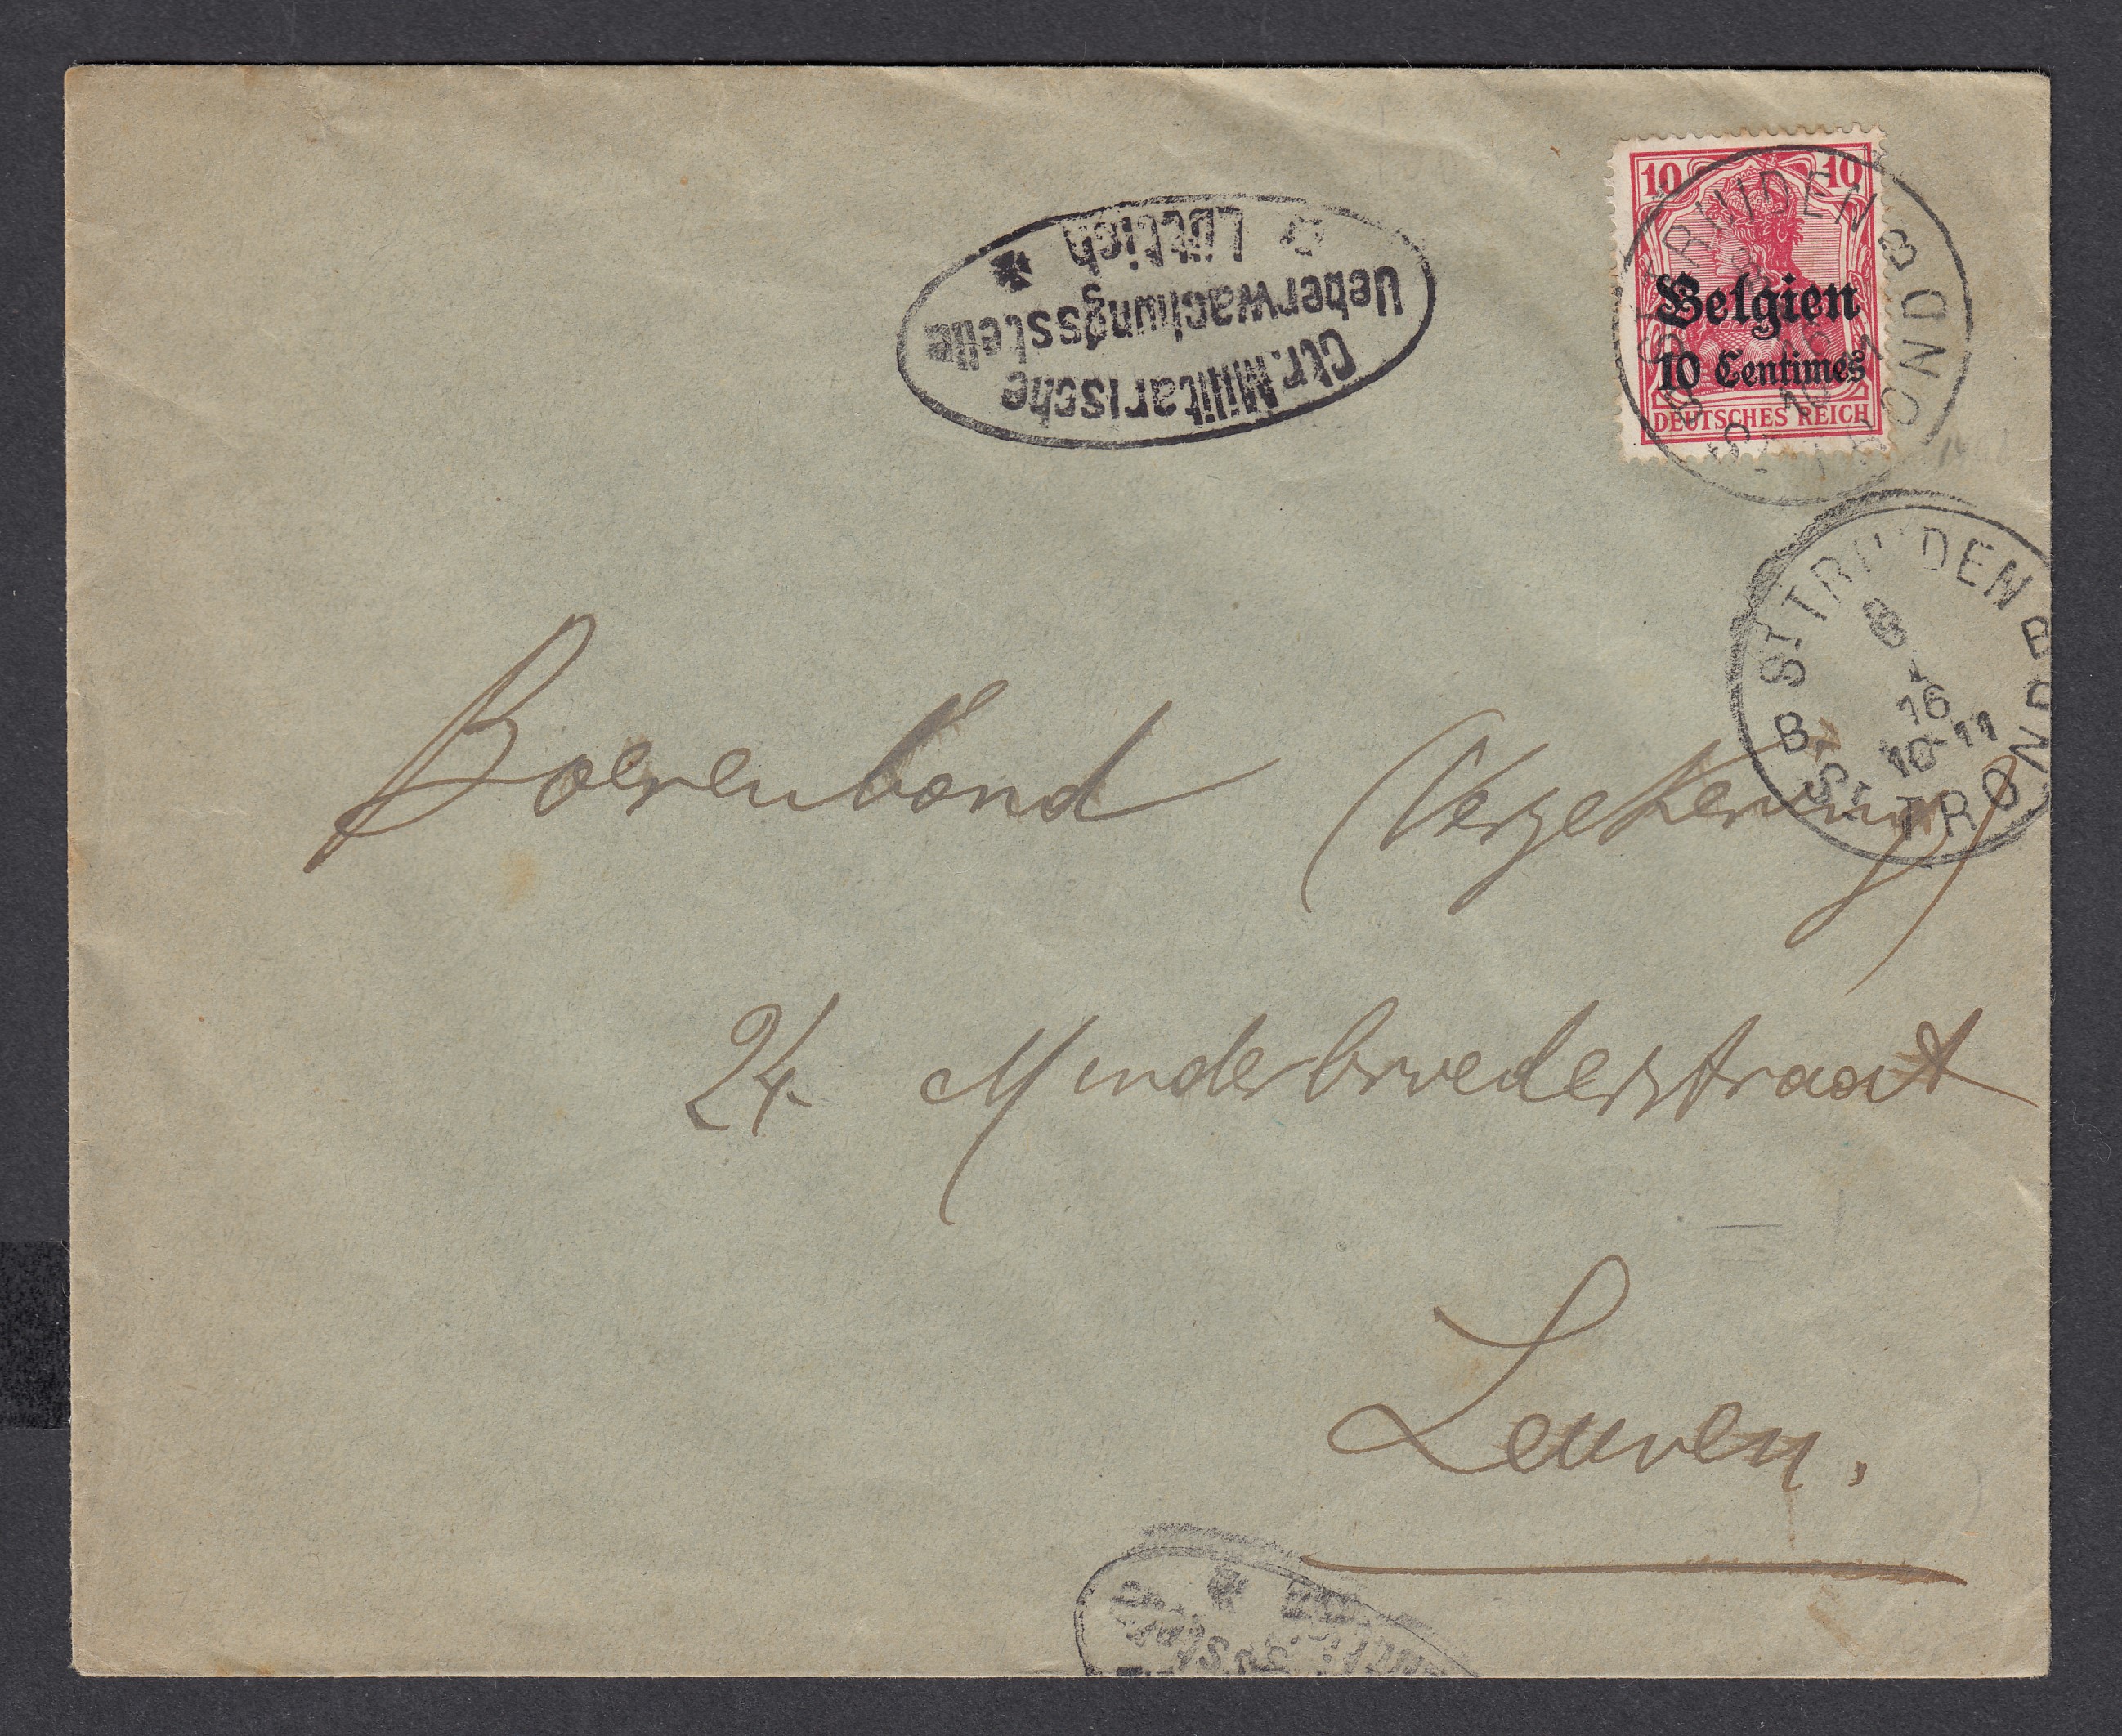 Ctr. Militärische
Ueberwachungsstelle
Lüttich
10 10
Belgien
10 Centimes
DEUTSCHES REICH
ST TRUIDEN B
ST TROND
B
ST TRUIDEN B
8
I
16
10-11
B ST TROND
Boerenbond (Verzekering)
24 Minderbroederstraat
Leuven.